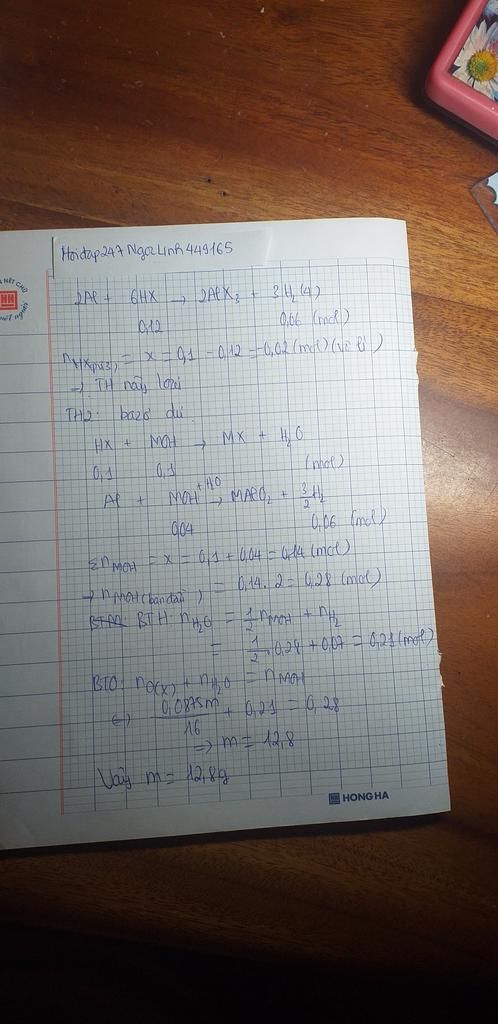 Hoidap247 NgocLinh449165
2Al + 6HX → 2AlX₃ + 3H₂ (4)
0,12 0,06 (mol)
= x = 0,1 - 0,12 = -0,02 (mol) (vô lí)
→ TH này loại
TH2: bazơ dư
HX + MOH → MX + H₂O
0,1 0,1 (mol)
Al + MOH +H₂O → MAlO₂ + 3/2 H₂
0,04 0,06 (mol)
Σn MOH = x = 0,1 + 0,04 = 0,14 (mol)
→ n MOH (ban đầu) = 0,14 . 2 = 0,28 (mol)
BTH: n H₂O = 1/2 n MOH + n H₂
= 1/2 . 0,28 + 0,07 = 0,21 (mol)
BTO: n O(X) + n H₂O = n MOH
⇔ 0,0875m/16 + 0,21 = 0,28
⇒ m = 12,8
Vậy m = 12,8g
HONG HA